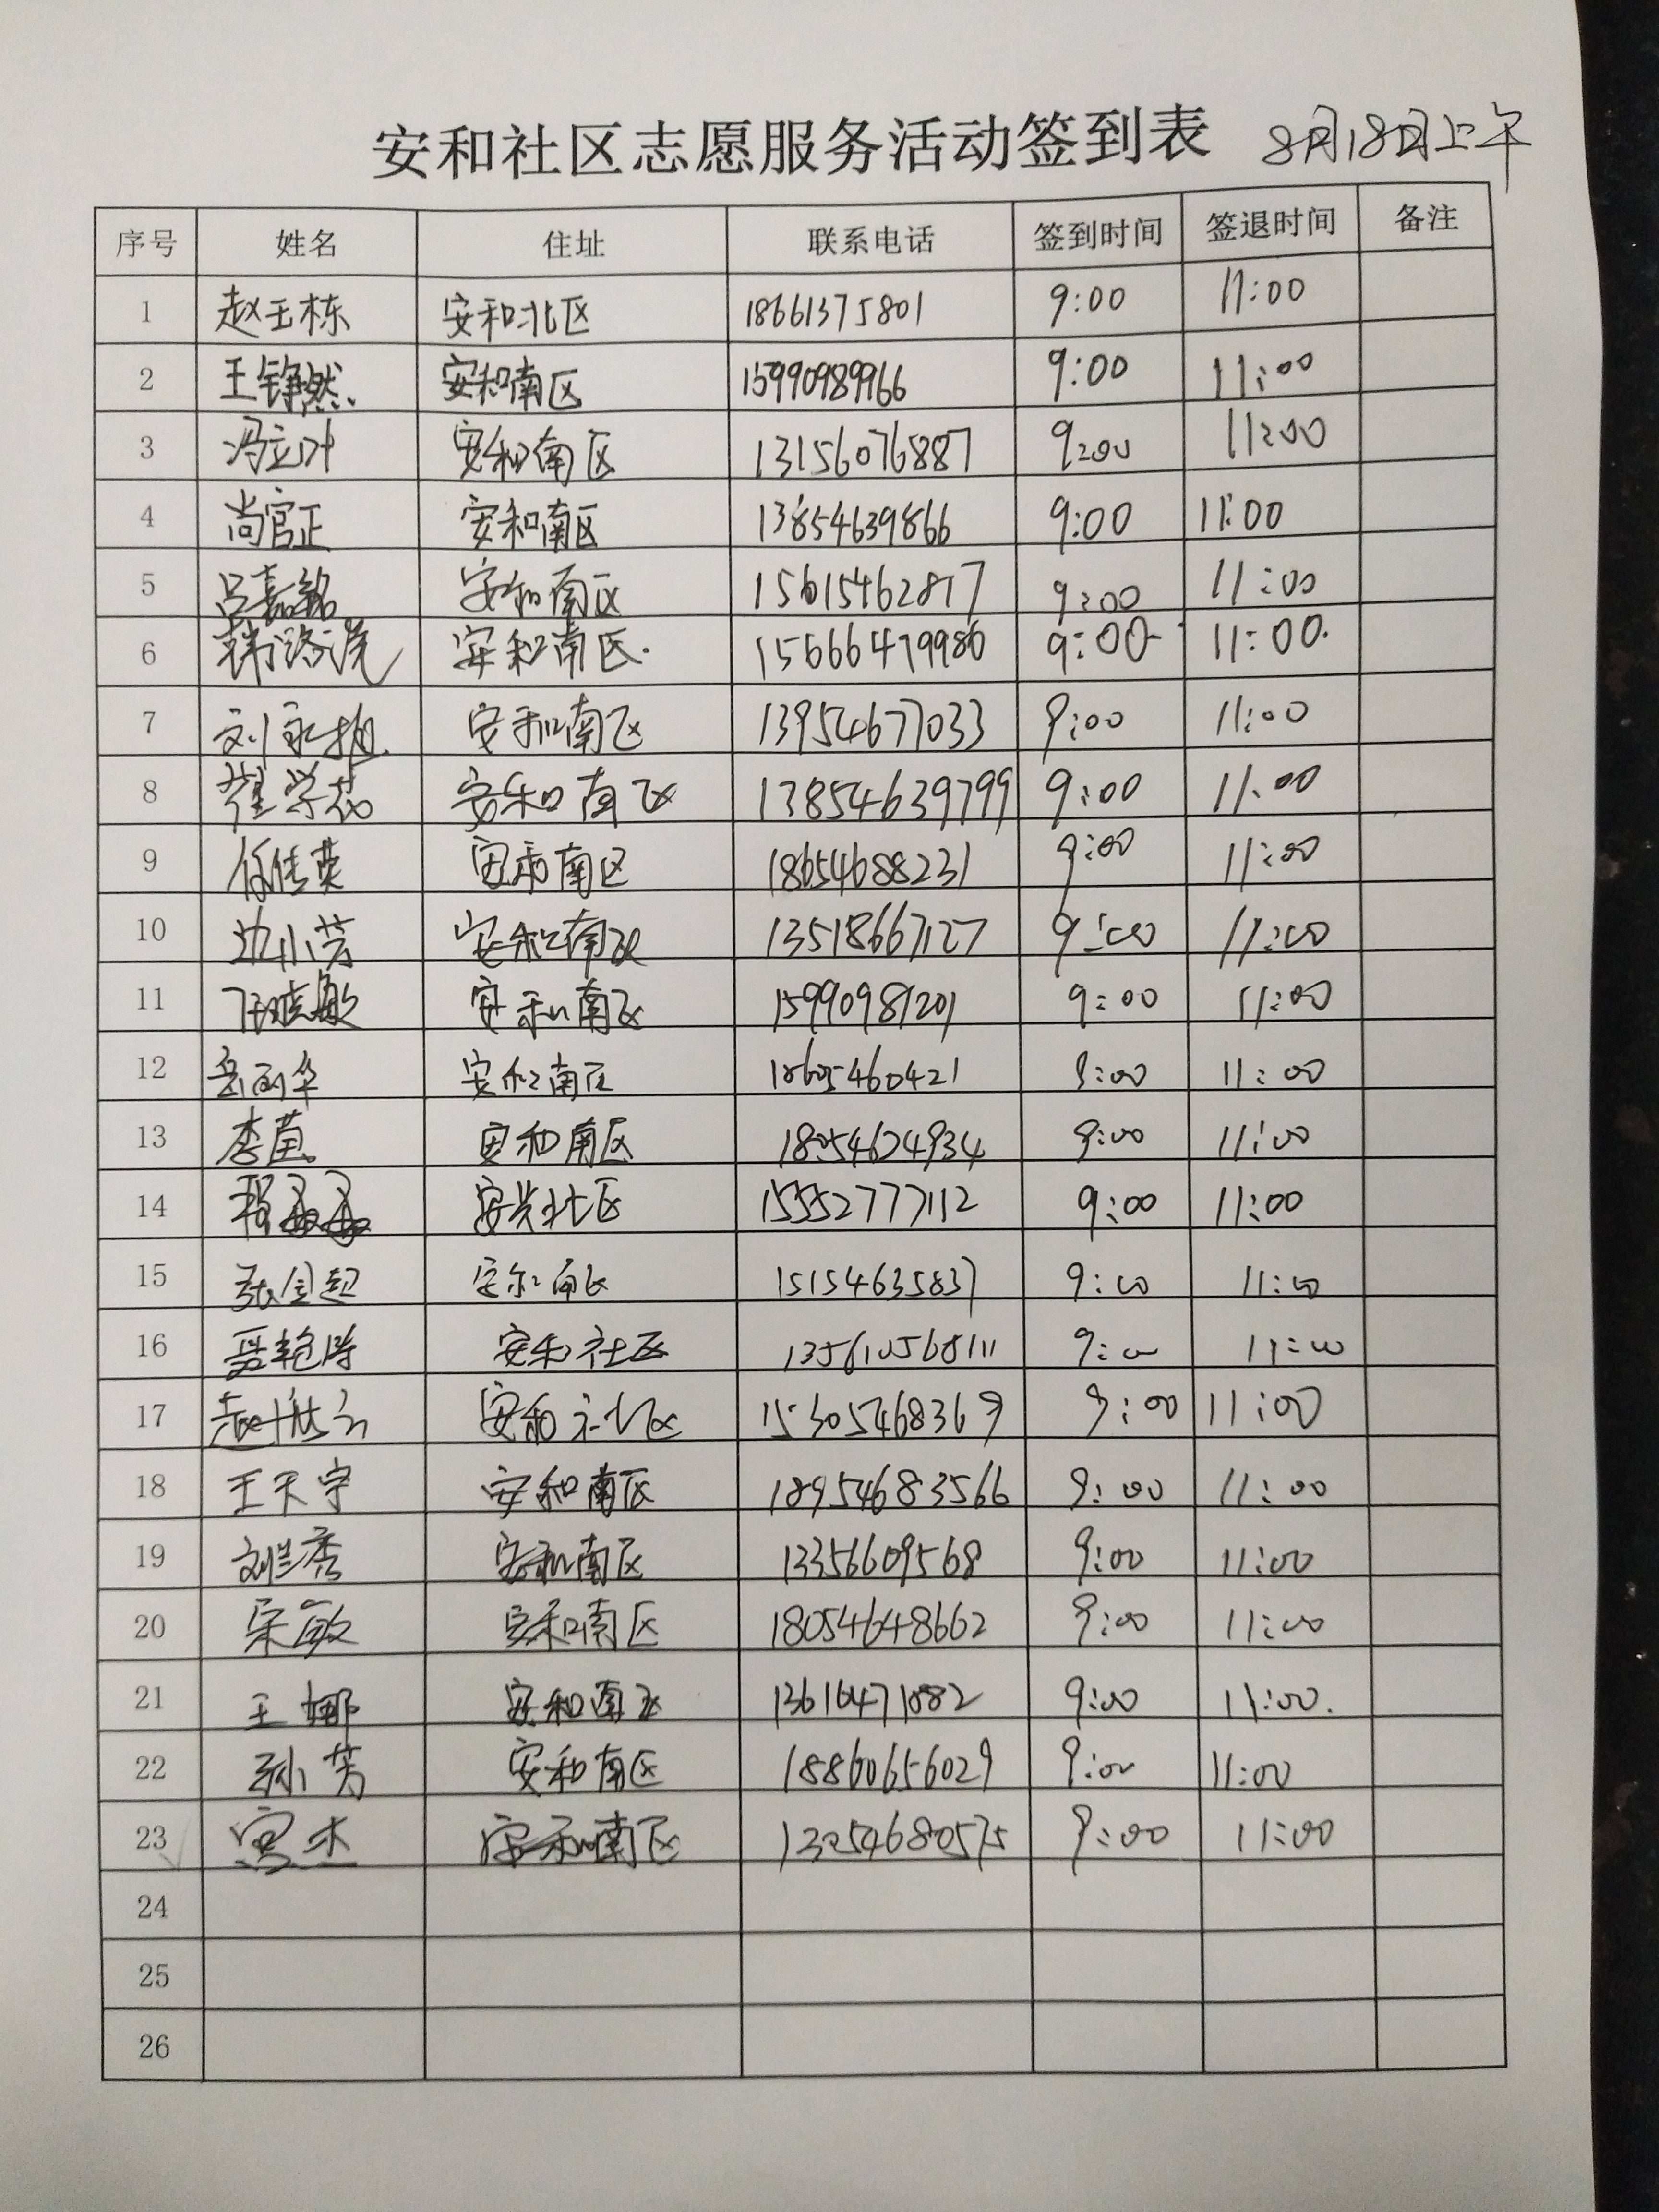 安和社区志愿服务活动签到表 8月18日上午
序号 姓名 住址 联系电话 签到时间 签退时间 备注
1 赵玉栋 安和北区 18661375801 9:00 11:00
2 王铮燃 安和南区 15990989966 9:00 11:00
3 冯立叶 安和南区 13156076887 9:00 11:00
4 尚官正 安和南区 13854639866 9:00 11:00
5 吕嘉铭 安和南区 15615462817 9:00 11:00
6 安和南区. 15666479980 9:00 11:00.
7 安和南区 13954677033 9:00 11:00
8 翟学花 安和南区 13854639799 9:00 11:00
9 任传英 安和南区 18654688231 9:00 11:00
10 边小芳 安和南区 13518667127 9:00 11:00
11 安和南区 15990981201 9:00 11:00
12 岳丽华 安和南区 18605460421 9:00 11:00
13 李苗 安和南区 18054624934 9:00 11:00
14 程磊磊 安兴北区 15552777112 9:00 11:00
15 张金超 安和南区 15154635837 9:00 11:00
16 安和社区 9:00 11:00
17 安和社区 15305468369 9:00 11:00
18 王天宇 安和南区 18954683566 9:00 11:00
19 刘兰秀 安和南区 13356609568 9:00 11:00
20 宋敏 安和南区 18054648662 9:00 11:00
21 王娜 安和南区 13616471882 9:00 11:00.
22 孙芳 安和南区 18860656029 9:00 11:00
23 宫杰 安和南区 13254680575 9:00 11:00
24
25
26